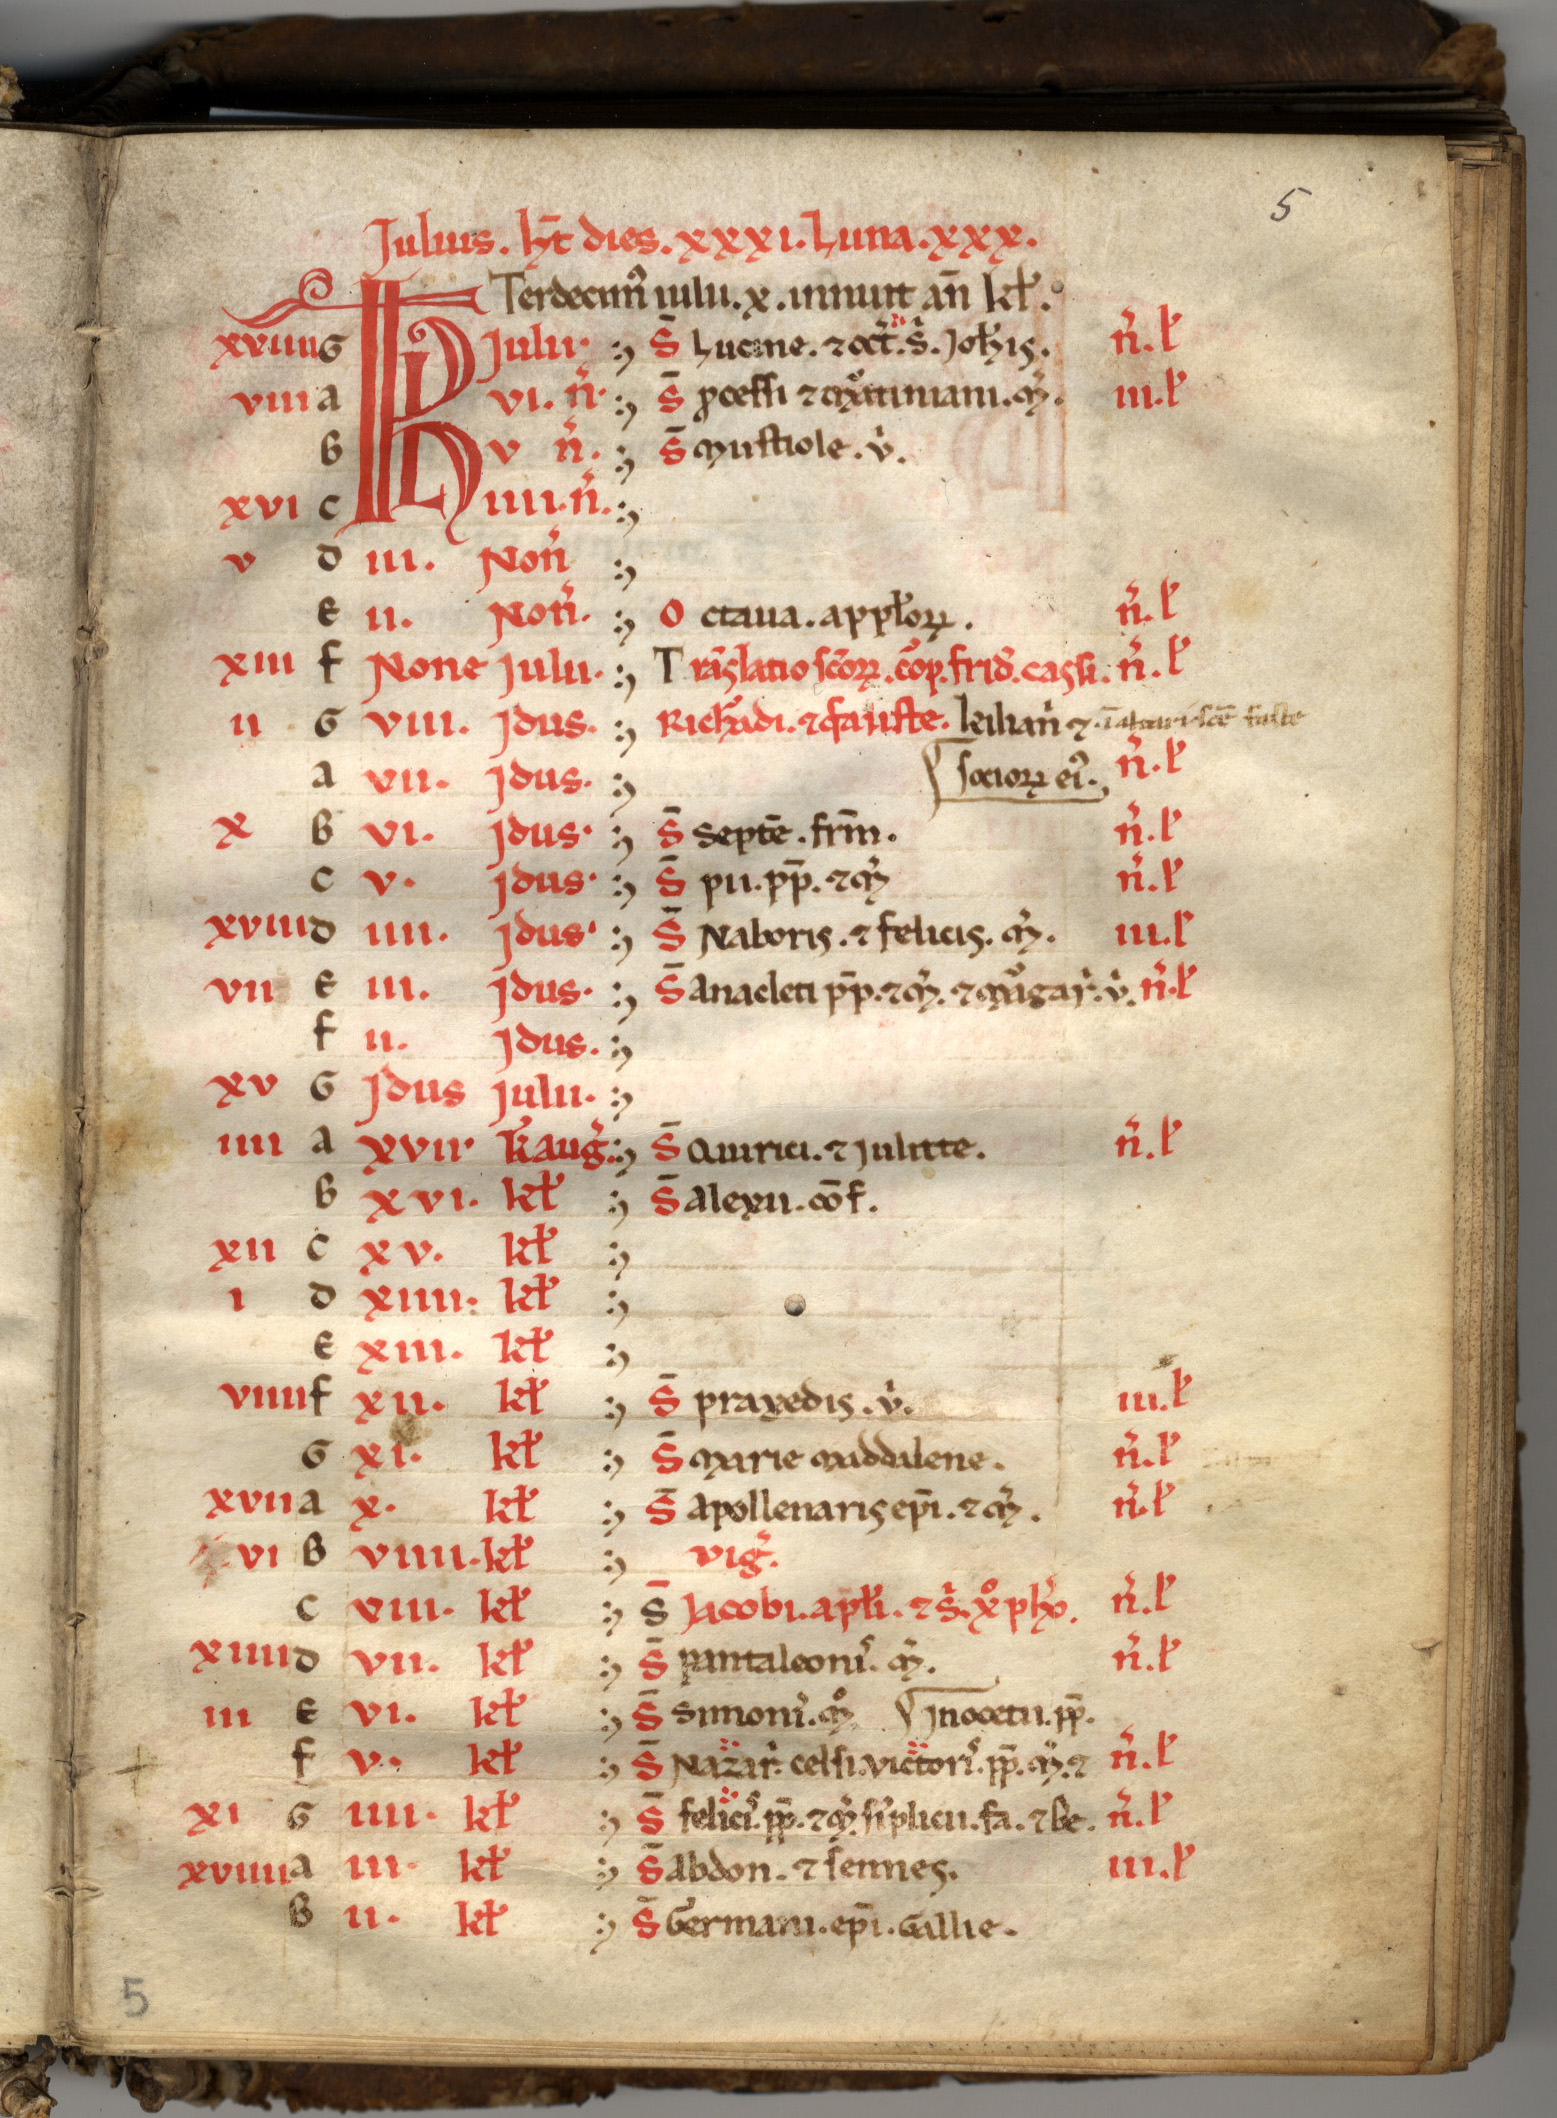 5
Julius. ħt dies. xxxi. Luna. xxx.
Terdecim̃ iulii. x. innuit an̄ kł.
xviiii G KL Julii. S̄ Lucine. ⁊ oct̃. s̃. Joħis. ñ. ł
viii a vi. ñ. S̄ ꝓcessi ⁊ martiniani. m̃. iii. ł
B v ñ. S̄ Mustiole. ṽ.
xvi c iiii. ñ.
v d iii. Noñ
e ii. Noñ. Octaua. appłoꝝ. ñ. ł
xiii f None Julii. Trāslatio scōꝝ. cōp. frid̃. cassi. ñ. ł
ii G viii. Jdus. Richãdi. ⁊ fauste. kiliañ ⁊
a vii. Jdus. socioꝝ ei᷒. ñ. ł
x B vi. Jdus. S̄ septē. fr̄m. ñ. ł
c v. Jdus. S̄ pii. pp̄. ⁊ m̃ ñ. ł
xviii d iiii. Jdus. S̄ Naboris. ⁊ felicis. m̃. iii. ł
vii e iii. Jdus. S̄ anacleti pp̄. ⁊ m̃. ⁊ margar̃. ṽ. ñ. ł
f ii. Jdus.
xv G Jdus Julii.
iiii a xvii. k̃ aug̃. S̄ Quirici. ⁊ Julitte. ñ. ł
B xvi. kł S̄ alexii. cōf.
xii c xv. kł
i d xiiii. kł
e xiii. kł
viiii f xii. kł S̄ praxedis. ṽ. iii. ł
G xi. kł S̄ Marie Maddalene. ñ. ł
xvii a x. kł S̄ apollenaris ep̄i. ⁊ m̃. ñ. ł
vi B viiii. kł vig̃.
c viii. kł S̄ Jacobi. apłi. ⁊ s̃. xp̃oph̃o. ñ. ł
xiiii d vii. kł S̄ pantaleonis̃. m̃. ñ. ł
iii e vi. kł S̄ simonis̃. m̃ Jnocētii. pp̄.
f v. kł S̄ Nazar̃. celsi. victoris̃. pp̄. m̃. ⁊ ñ. ł
xi G iiii. kł S̄ felicis̃. pp̄. ⁊ m̃. sĩplicii. fa. ⁊ be. ñ. ł
xviiii a iii. kł S̄ abdon. ⁊ sennes. iii. ł
B ii. kł S̄ Germani. ep̄i. Gallie.
5